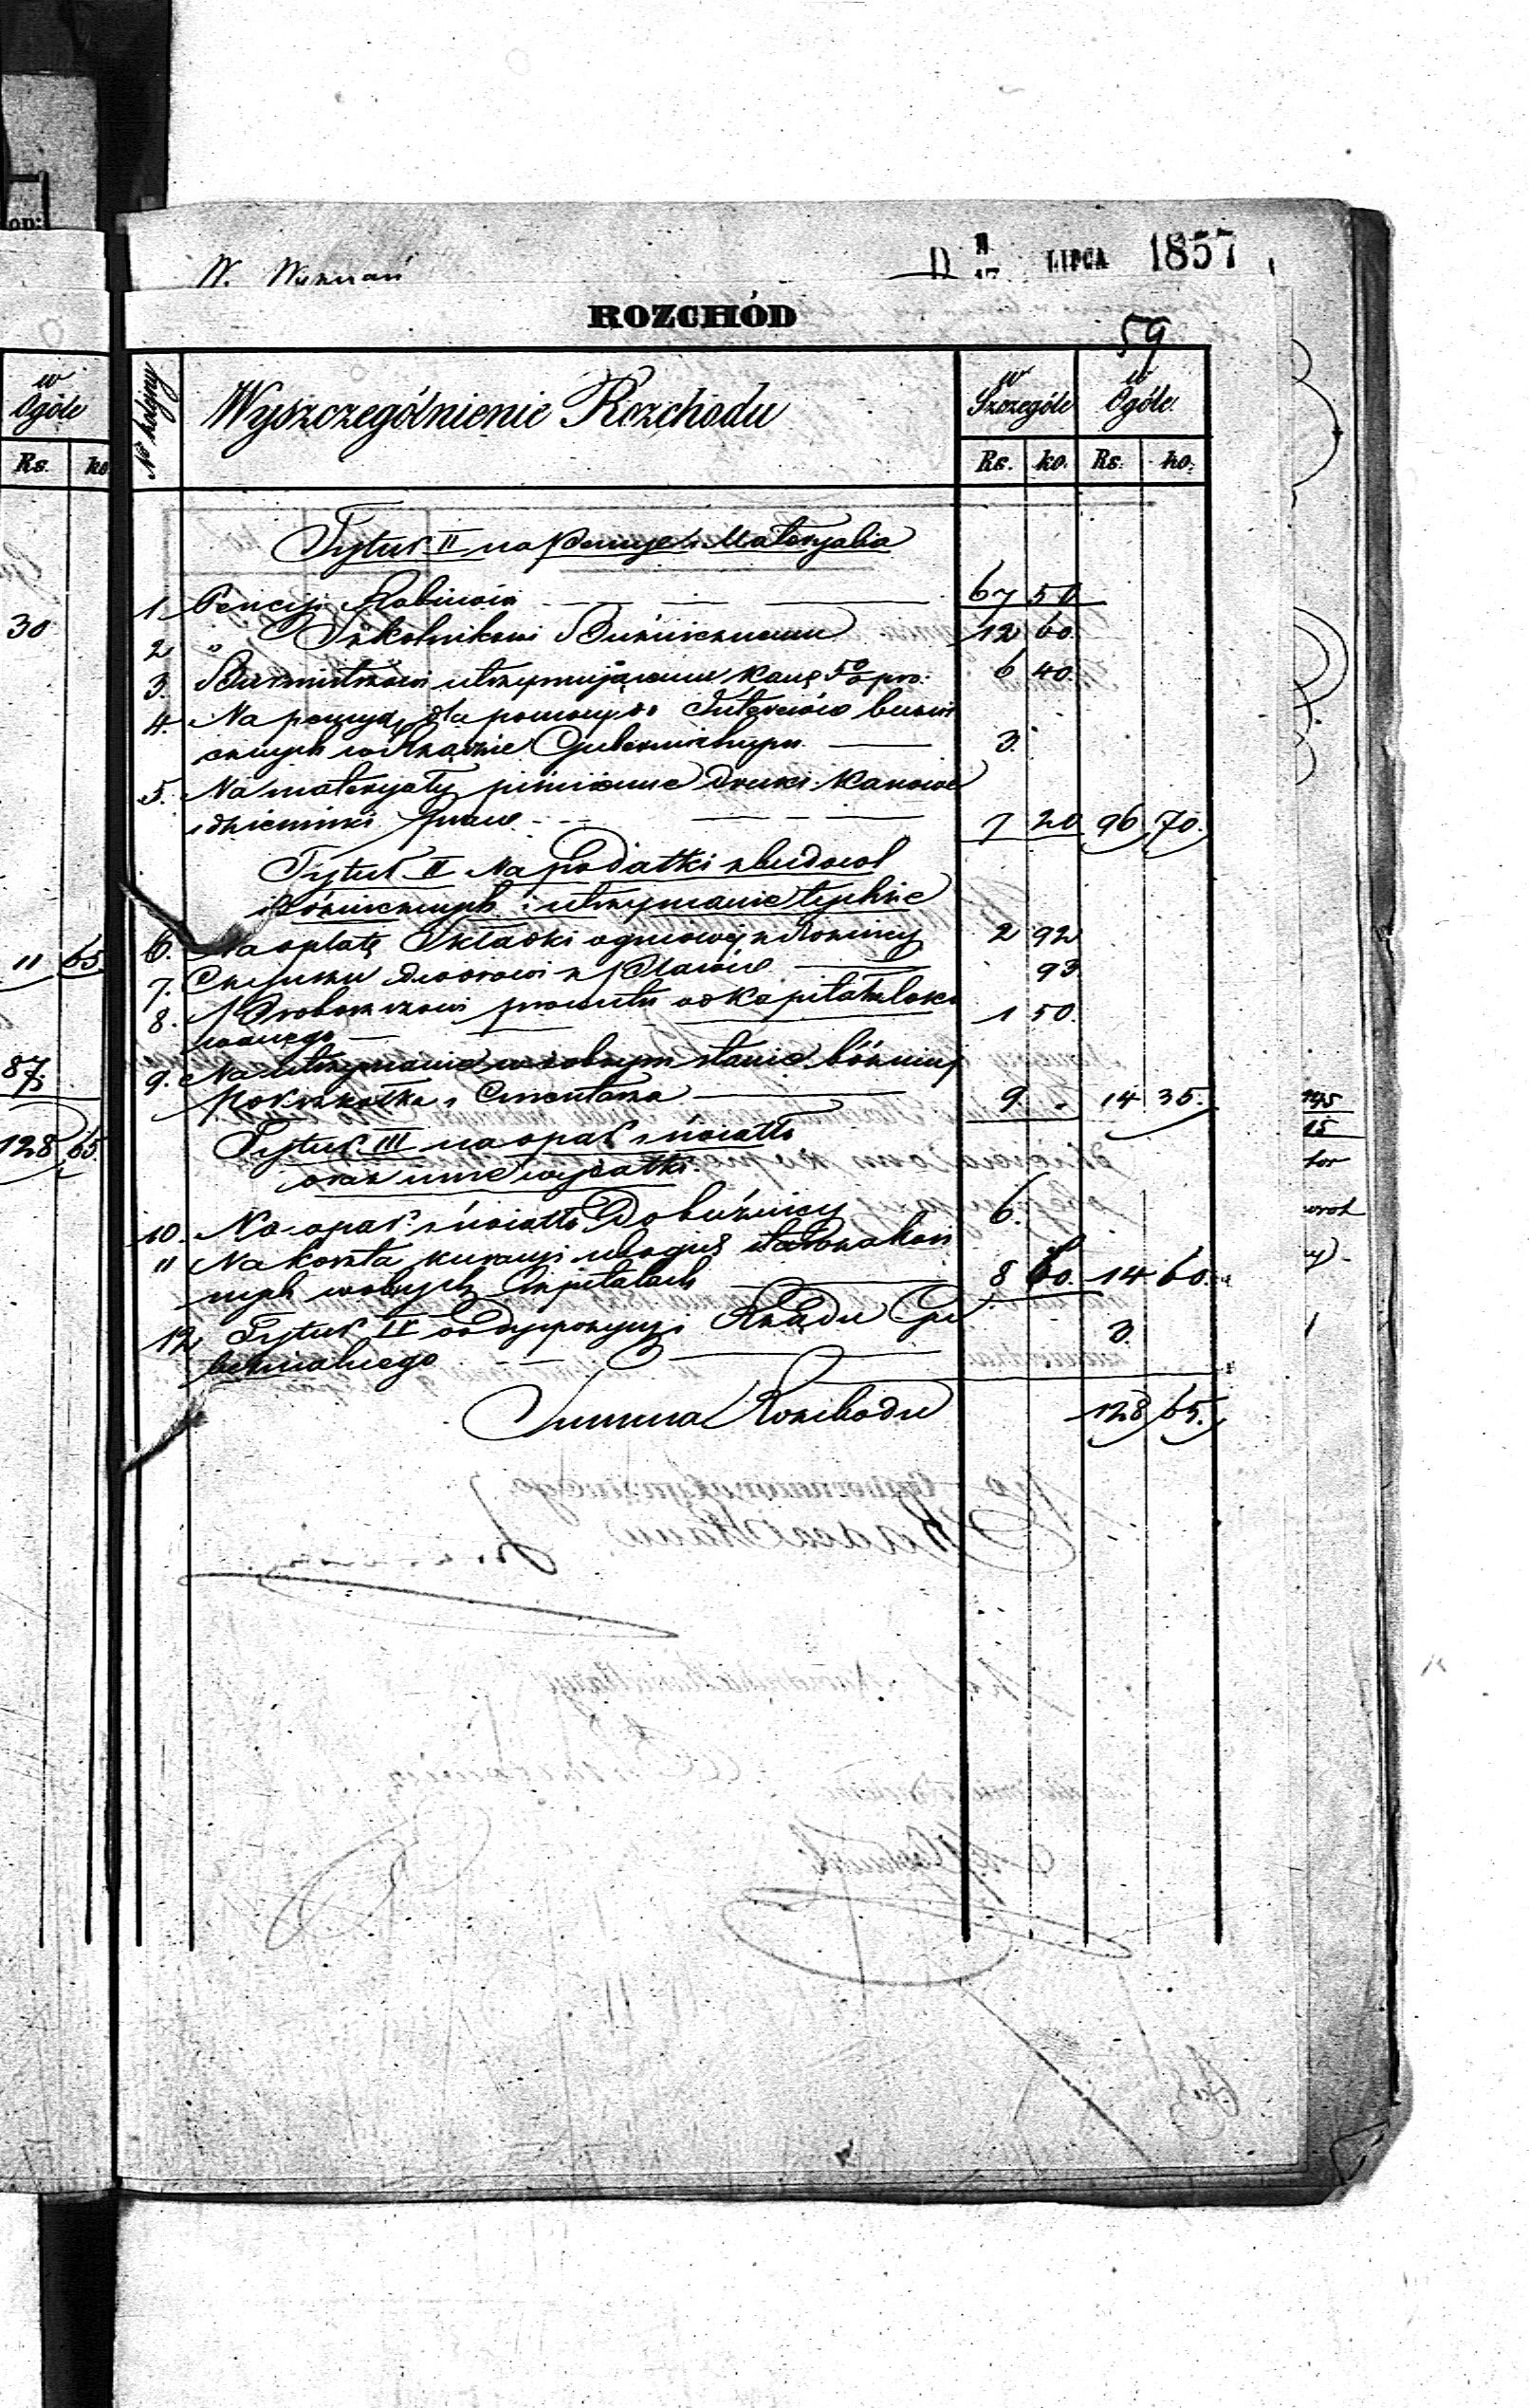 W. Wyznań
D LIPCA 1857
ROZCHÓD
59
No kolejny
Wyszczególnienie Rozchodu
w Szczególe
w Ogóle
Rs. ko. Rs. ko.
Tytuł II na pensye i Materyalia
1 Pencyi Rabinowi 67 50
2 " Szkolnikowi Bużnicznemu 12 60
3. Burmistrzowi utrzymującemu kasę 5% pro. 6 40
4. Na pensyą dla pomocy do Interesów bużni
cznych w Rządzie Gubernialnym 3.
5. Na materyały piśmienne druki kasowe
i dzienniki praw 7 20 96 70.
Tytuł II Na podatki z budowl
Bóżnicznych i utrzymanie tychże
6. Na opłatę Składki ogniowej z Bożnicy 2 92
7. Czynszu dworowi z Placów 93
8. Proboszczowi procentu od kapitału loko
wanego 1 50.
9. Na utrzymanie w dobrym stanie bóżnicy
i Cmentarza 9. 14 35.
Tytuł III na opał i światło
oraz inne wydatki.
10. Na opał i światło Do bużnicy 6.
11 Na koszta kuracyi ubogich starozakon
nych w obcych Szpitalach 8 60. 14 60.
12 Tytuł IV do dyspozycyi Rządu Gu
bernialnego 3.
Summa Rozchodu 128 65.
w Ogóle
Rs. ko
30
11 65
87
128 65.